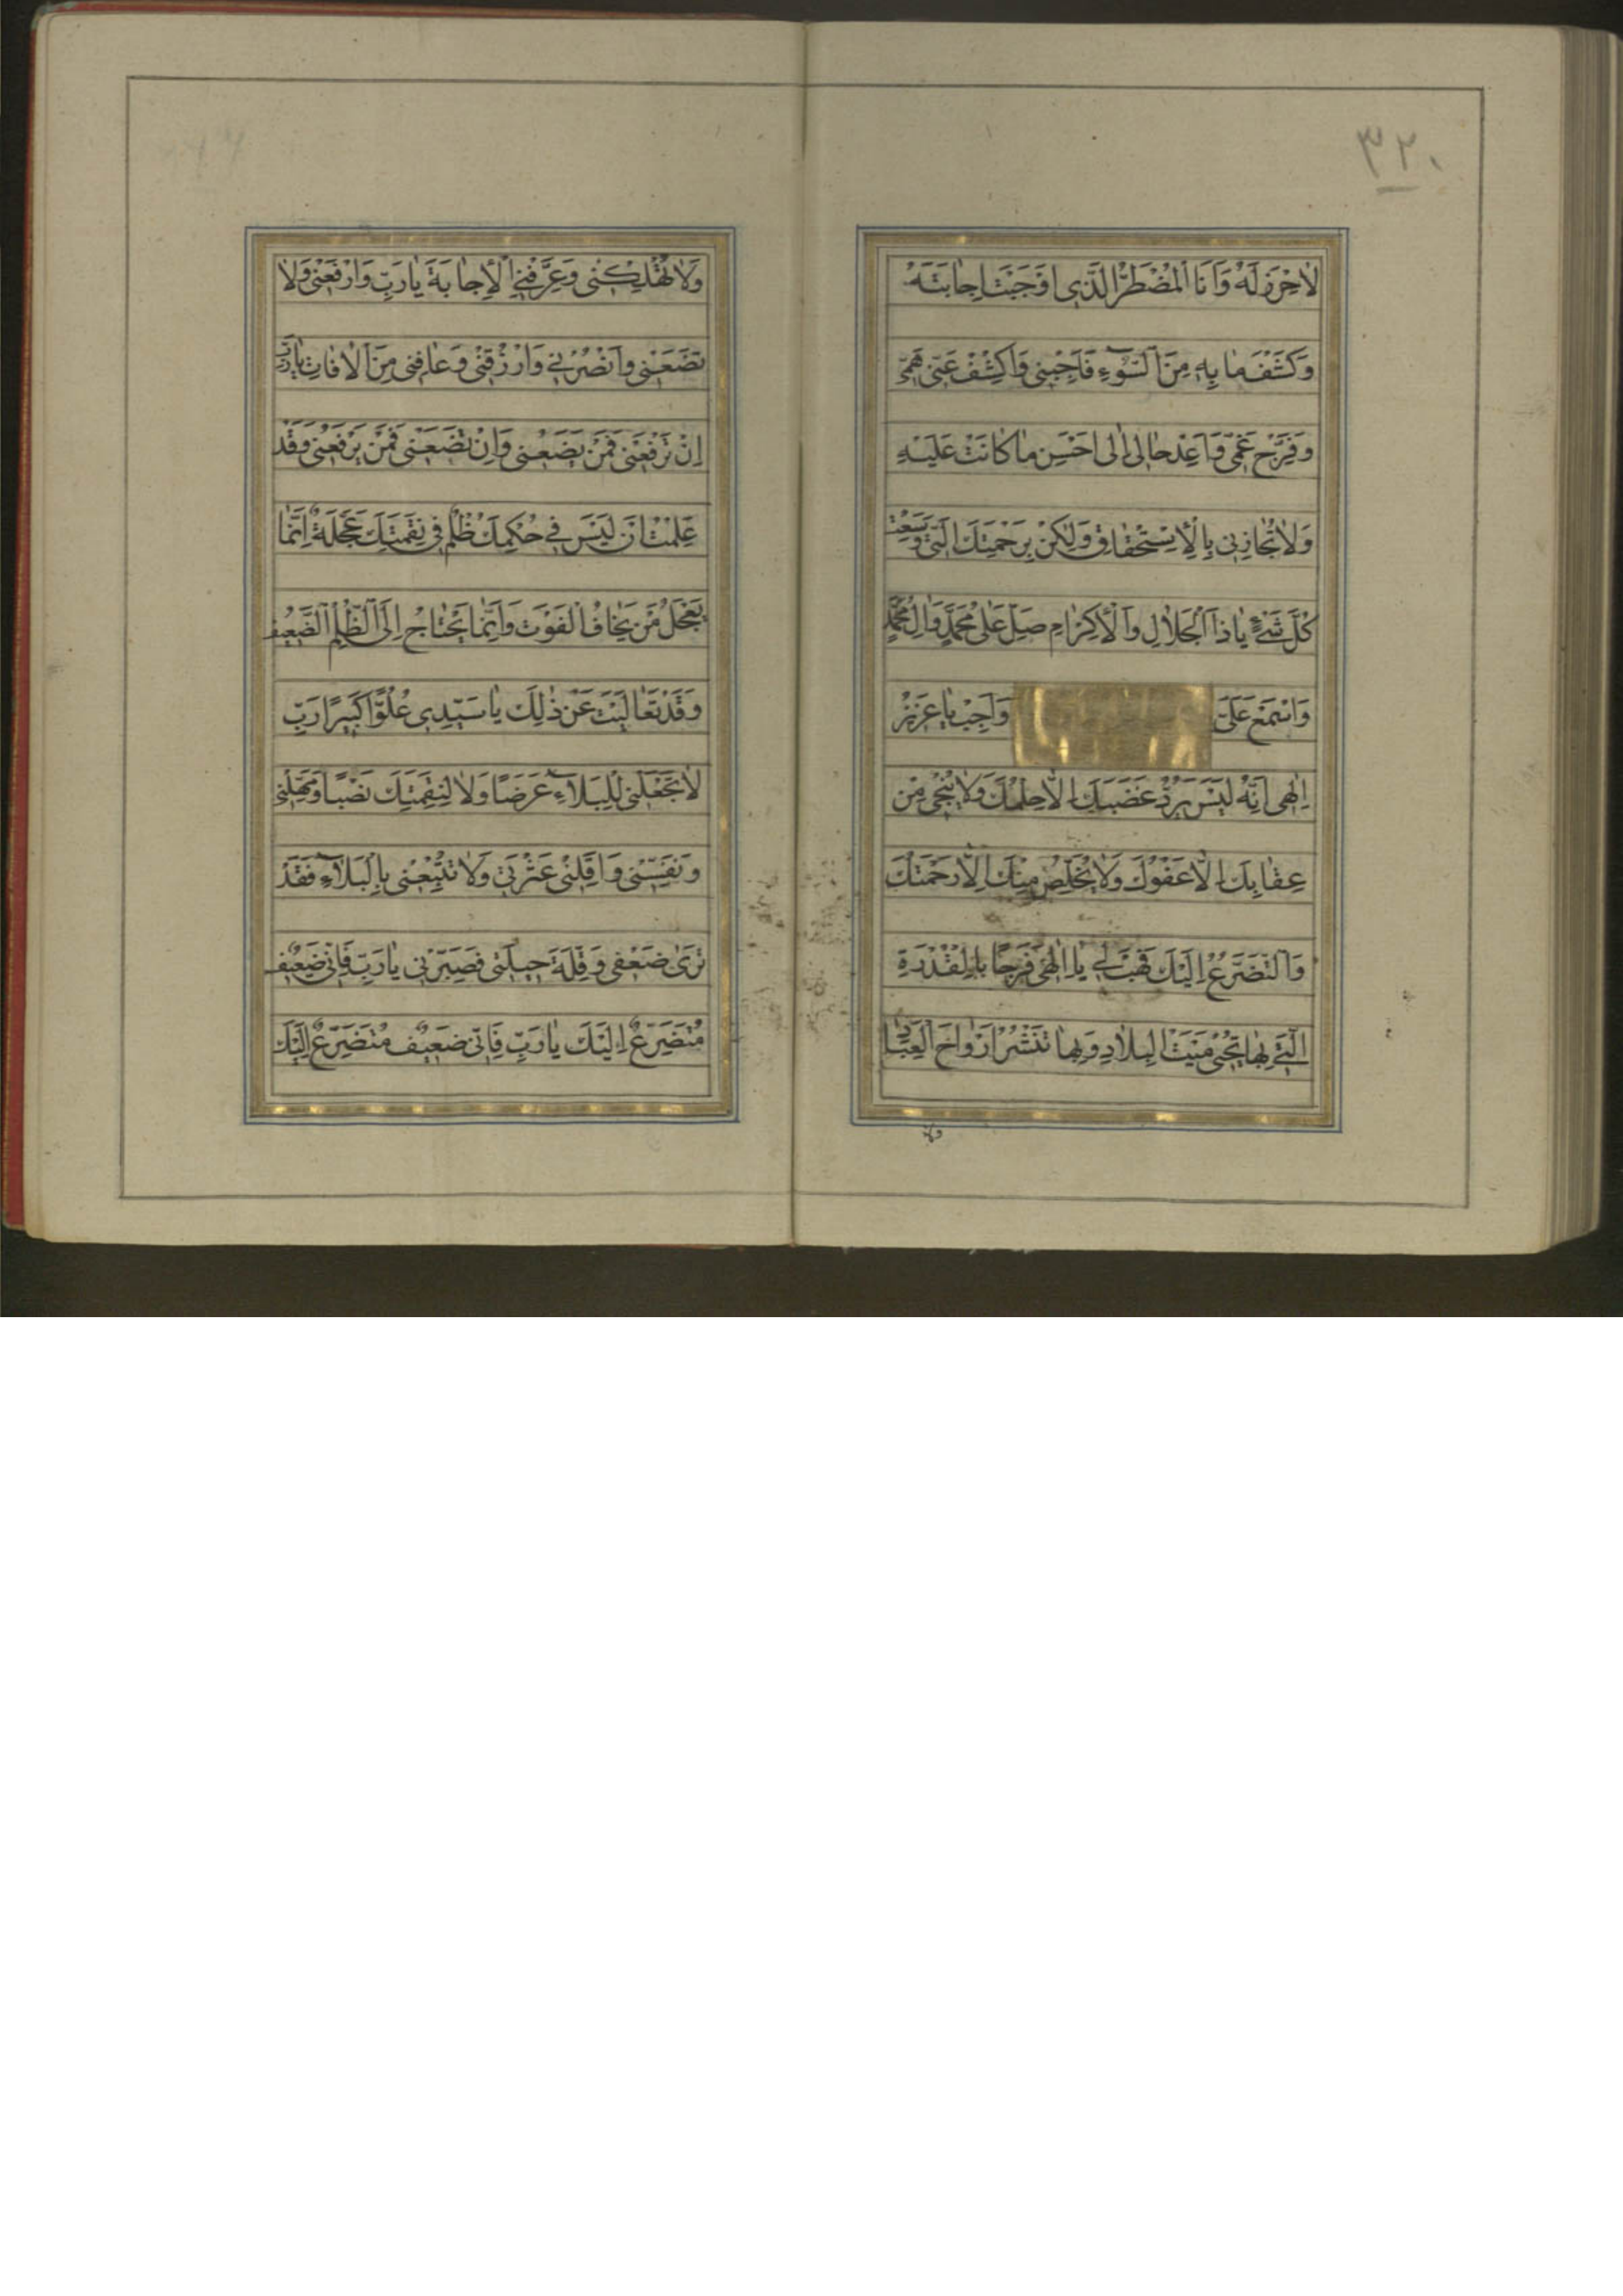 ٣٢٠
لاٰحِرْزَ لَهُ وَاَنَا الْمُضْطَرُّ الَّذٖى اَوْجَبْتَ اِجٰابَتَهُ
وَكَشْفَ مٰا بِهٖ مِنَ السُّوۤءِ فَاَجِبْنٖى وَاكْشِفْ عَنّٖى هَمّٖى
وَفَرِّجْ غَمّٖى وَاَعِدْ حٰالٖى اِلٰى اَحْسَنِ مٰا كٰانَتْ عَلَيْهِ
وَلاٰ تُجٰازِنٖى بِالْاِسْتِحْقٰاقِ وَلٰكِنْ بِرَحْمَتِكَ الَّتٖى وَسِعَتْ
كُلَّ شَىْءٍ يٰا ذَا الْجَلاٰلِ وَالْاِكْرٰامِ صَلِّ عَلٰى مُحَمَّدٍ وَاٰلِ مُحَمَّدٍ
وَاسْمَعْ عَلَىَّ وَاَجِبْ يٰا عَزٖيزُ
اِلٰهٖى اِنَّهُ لَيْسَ يَرُدُّ غَضَبَكَ اِلاَّ حِلْمُكَ وَلاٰ يُنْجٖى مِنْ
عِقٰابِكَ اِلاَّ عَفْوُكَ وَلاٰ يُخَلِّصُ مِنْكَ اِلاَّ رَحْمَتُكَ
وَالتَّضَرُّعُ اِلَيْكَ فَهَبْ لٖى يٰا اِلٰهٖى فَرَجًا بِالْقُدْرَةِ
الَّتٖى بِهٰا تُحْيٖى مَيْتَ الْبِلاٰدِ وَبِهٰا تَنْشُرُ اَرْوٰاحَ الْعِبٰادِ
ولا
وَلاٰ تُهْلِكْنٖى وَعَرِّفْنِى الْاِجٰابَةَ يٰا رَبِّ وَارْفَعْنٖى وَلاٰ
تَضَعْنٖى وَانْصُرْنٖى وَارْزُقْنٖى وَعٰافِنٖى مِنَ الْاٰفٰاتِ يٰا رَبِّ
اِنْ تَرْفَعْنٖى فَمَنْ يَضَعُنٖى وَاِنْ تَضَعْنٖى فَمَنْ يَرْفَعُنٖى وَقَدْ
عَلِمْتُ اَنْ لَيْسَ فٖى حُكْمِكَ ظُلْمٌ فٖى نِقْمَتِكَ عَجَلَةٌ اِنَّمٰا
يَعْجَلُ مَنْ يَخٰافُ الْفَوْتَ وَاِنَّمٰا يَحْتٰاجُ اِلَى الظُّلْمِ الضَّعٖيفُ
وَقَدْ تَعٰالَيْتَ عَنْ ذٰلِكَ يٰا سَيِّدٖى عُلُوًّا كَبٖيرًا رَبِّ
لاٰ تَجْعَلْنٖى لِلْبَلاٰۤءِ غَرَضًا وَلاٰ لِنِقْمَتِكَ نَصْبًا وَمَهِّلْنٖى
وَنَفِّسْنٖى وَاَقِلْنٖى عَثْرَتٖى وَلاٰ تُتْبِعْنٖى بِالْبَلاٰۤءِ فَقَدْ
تَرٰى ضَعْفٖى وَقِلَّةَ حٖيلَتٖى فَصَبِّرْنٖى يٰا رَبِّ فَاِنّٖى ضَعٖيفٌ
مُتَضَرِّعٌ اِلَيْكَ يٰا رَبِّ فَاِنّٖى ضَعٖيفٌ مُتَضَرِّعٌ اِلَيْكَ